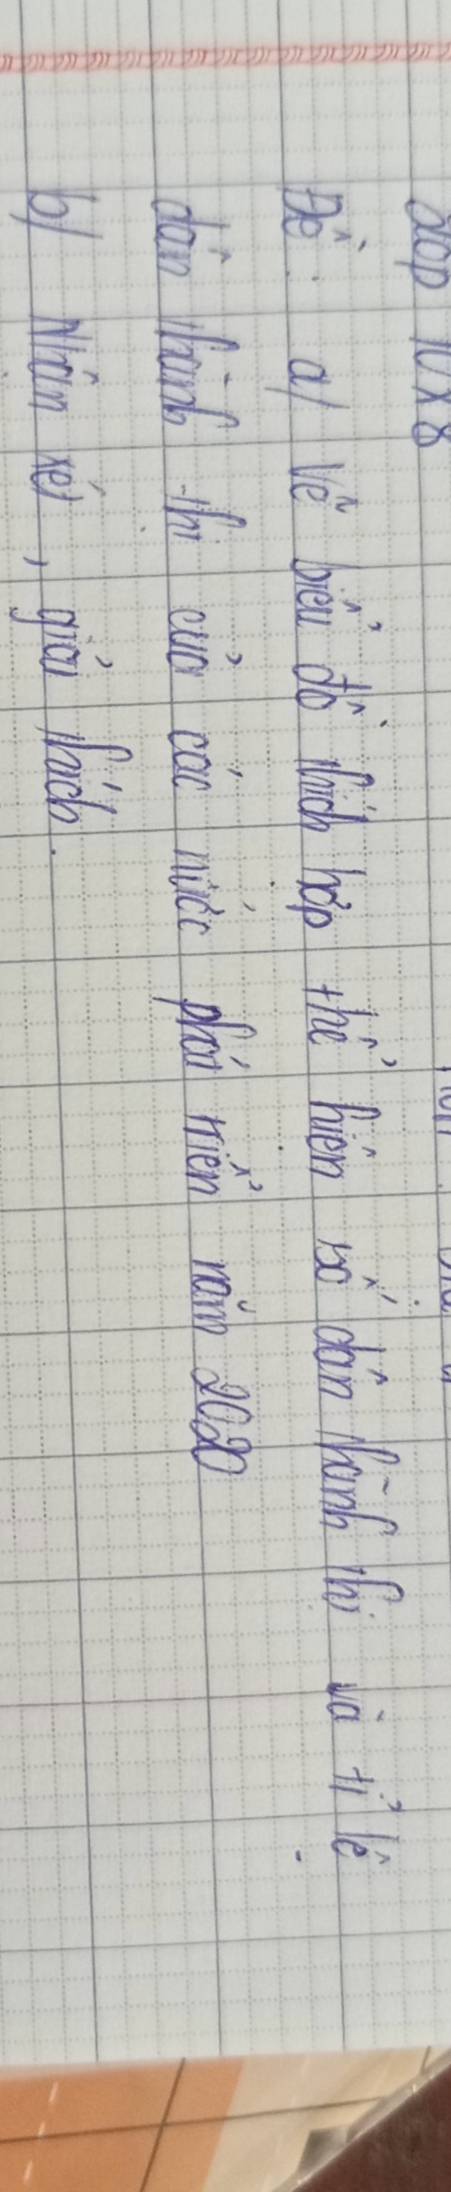 Lớp 10X8
Đề: a/ Vẽ biểu đồ thích hợp thể hiện số dân thành thị và tỉ lệ
dân thành thị của các nước phát triển năm 2020
b/ Nhận xét, giải thích.